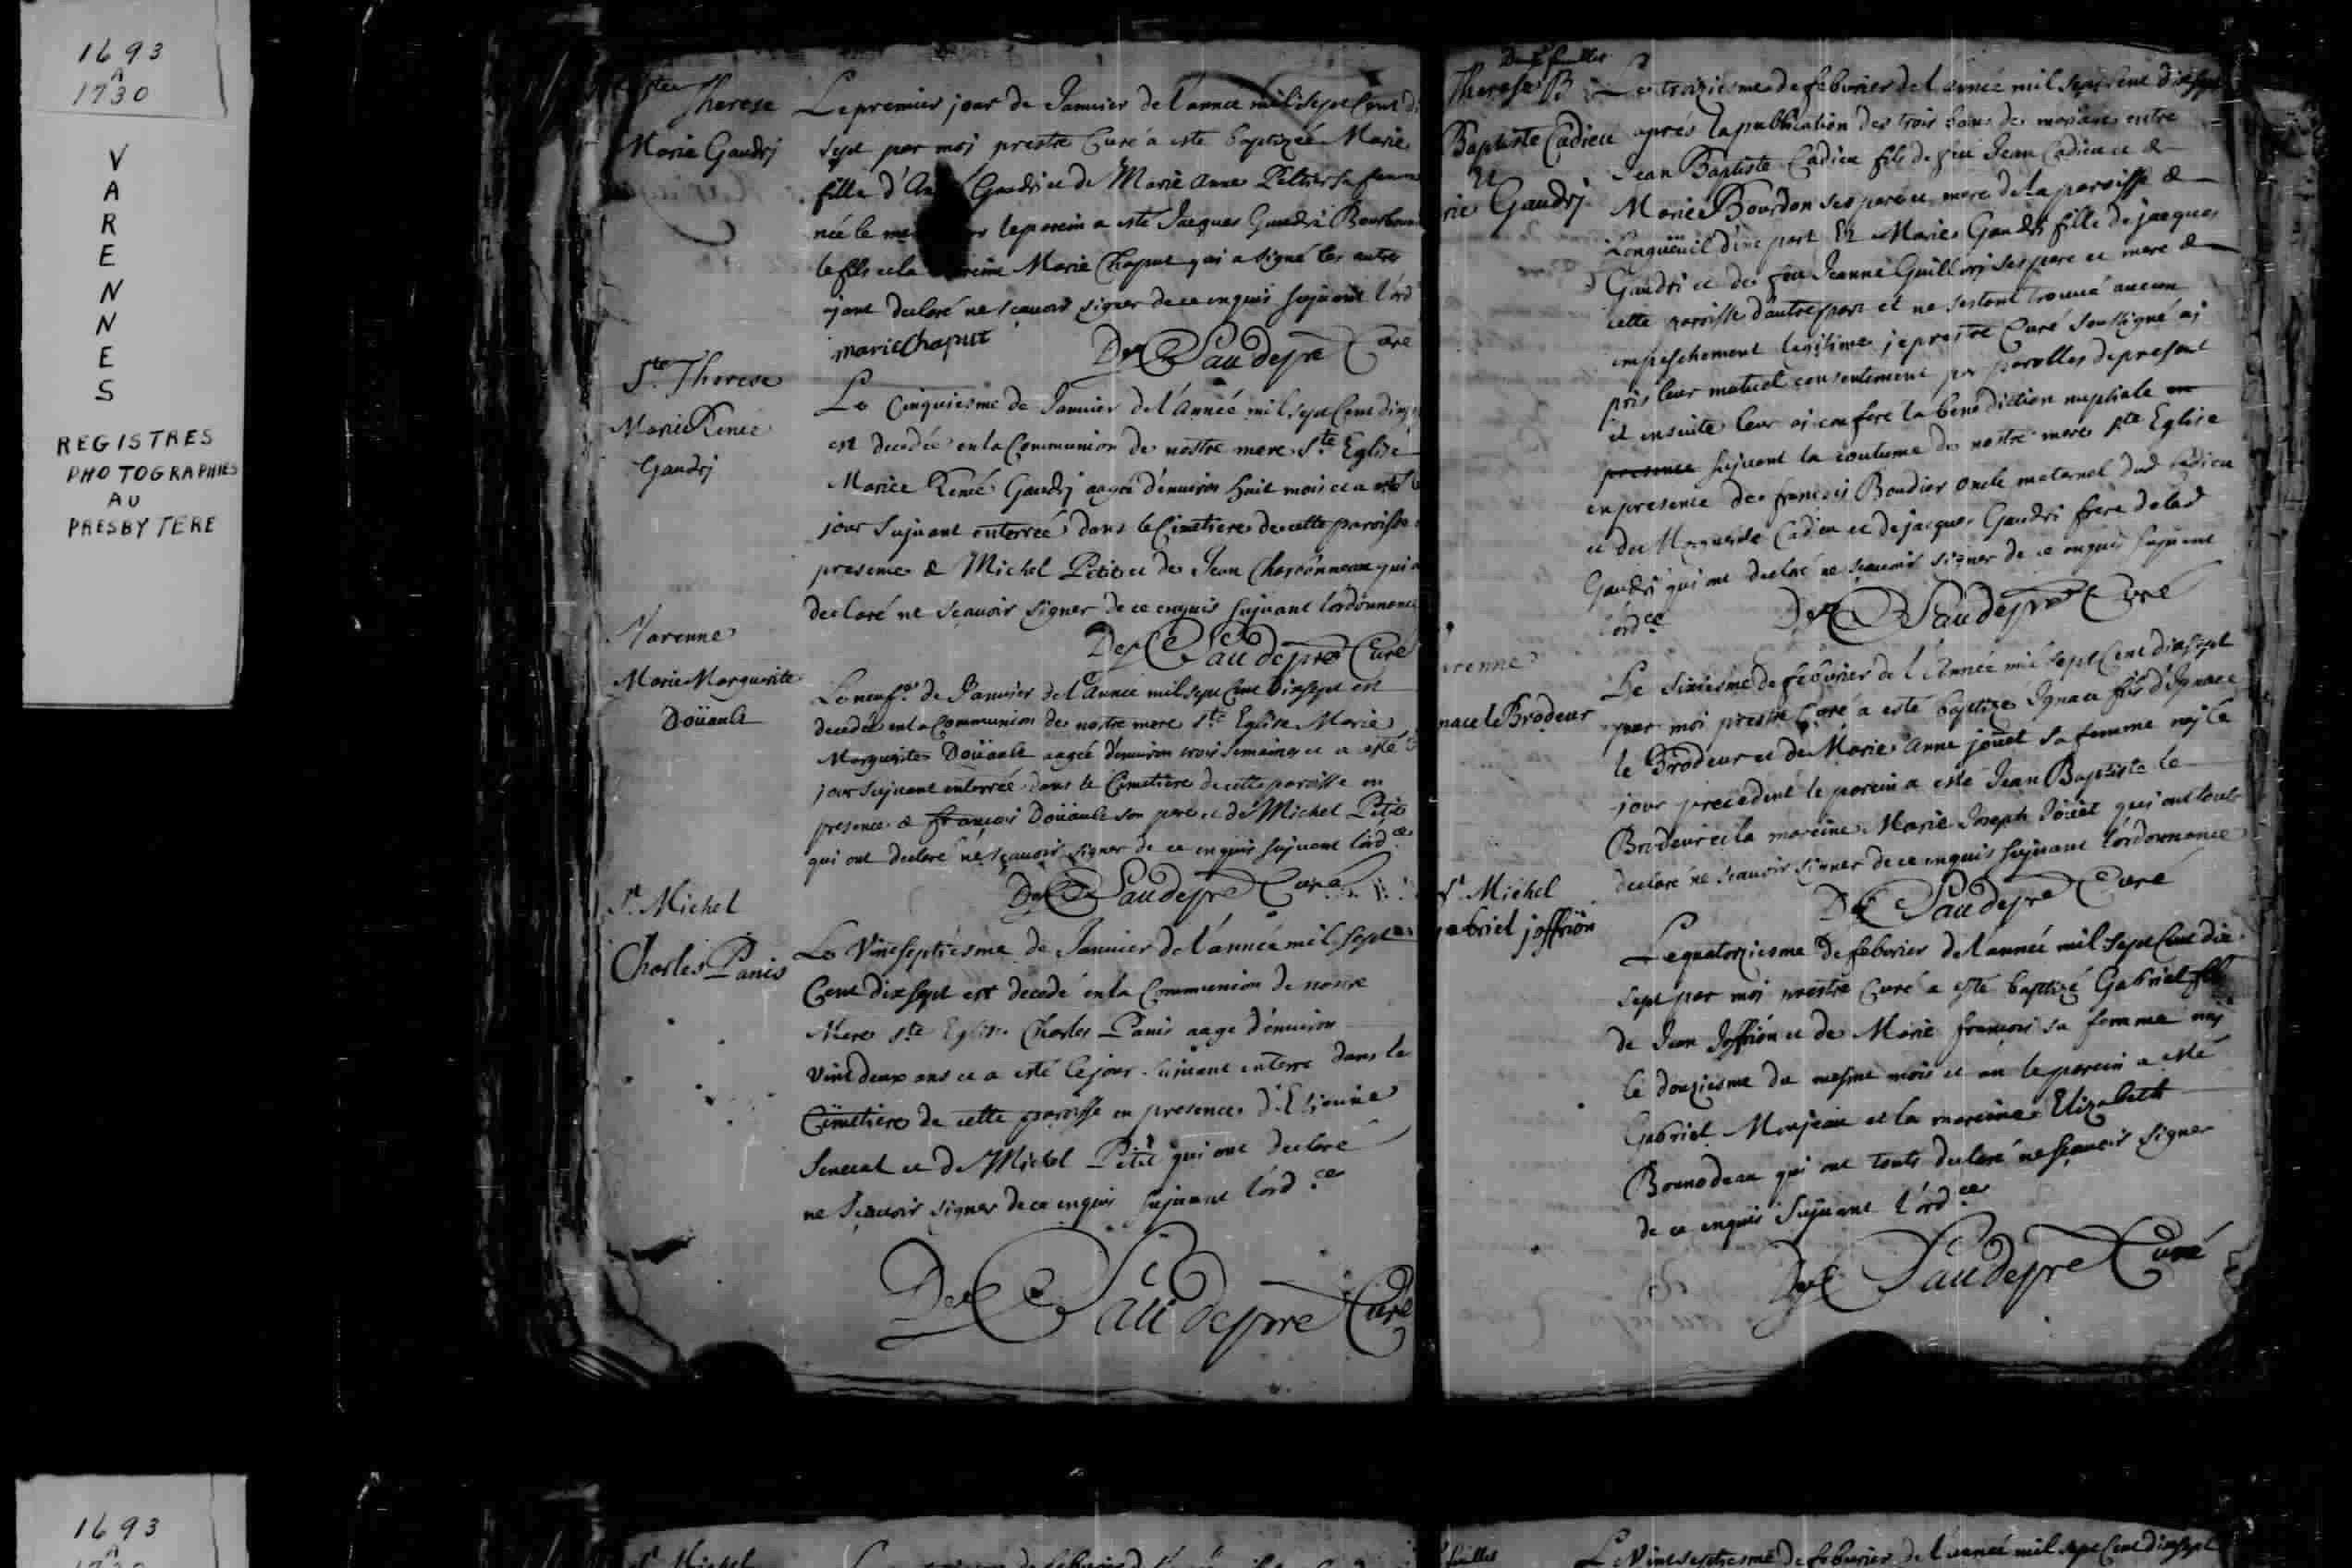 1693
A
1730
VARENNES
REGISTRES
PHOTOGRAPHIES
AU
PRESBYTERE
Ste Therese
Marie Gaudrj
Le premier jour de Januier de l'annee mil sept Cent
sept par moj prestre Curé a este baptizeé Marie
fille d' Gaudri et de Marie Anne Peltier sa femme
neé le le parein a esté Jacques Gaudri Bourbonniere
le fils et la Marie Chaput qui a signé les autres
ajant declaré ne scauoir signer de ce enquis sujuant l'ord
marie Chaput
De Saudepre Curé
Ste Therese
Marie Reneé
Gaudrj
Le Cinquiesme de Januier de l'Année mil sept Cent
est decedeé en la Communion de nostre mere Ste Eglise
Marie Reneé Gaudrj aageé d'enuiron huit mois et a esté
jour sujuant enterreé dans le Cimetiere de cette paroisse
presence de Michel Petit et de Jean Charbonneau qui
declaré ne scauoir signer de ce enquis sujuant l'ordonnance
De Saudepre Curé
Varenne
Marie Marguerite
Doüault
Le neufe de Januier de l'année mil sept Cent dixsept est
decedeé en la Communion de nostre mere Ste Eglise Marie
Marguerite Doüault aageé d'enuiron trois semaines et a esté
jour sujuant enterreé dans le Cimetiere de cette paroisse en
presence de françois Doüault son pere et de Michel Petit
qui ont declaré ne scauoir signer de ce enquis sujuant l'ordce
De Saudepre Curé
St Michel
Charles Panis
Le Vintseptiesme de Januier de l'année mil sept
Cent dixsept est decedé en la Communion de nostre
Mere Ste Eglise Charles Panis aagé d'enuiron
vint deux ans et a esté le jour sujuant enterré dans le
Cimetiere de cette paroisse en presence d'Etienne
Senecal et de Michel Petit qui ont declaré
ne scauoir signer de ce enquis sujuant l'ordce
De Saudepre Curé
Therese
Baptiste Cadieu
et
rie Gaudrj
Le de febvrier de l'année mil sept cent dixsept
aprés la publication des trois bans de mariage entre
Jean Baptiste Cadieu fils de feu Jean Cadieu et de
Marie Bourdon ses pere et mere de la paroisse de
Longueüil d'une part Et Marie Gaudri fille de jacques
Gaudri et de feu Jeanne Guillorj ses pere et mere de
cette paroisse d'autre part et ne sestant trouvé aucun
empeschement legitime je prestre Curé soussigné aj
pris leur mutuel consentement par parolles de present
et ensuite leur aj conferé la benediction nuptiale en
presence sujuant la coutume de nostre mere Ste Eglise
en presence de françois Boudier oncle maternel dud Cadieu
et de Marguerite Cadieu et de jacques Gaudri frere de lad
Gaudri qui ont declaré ne scauoir signer de ce enquis sujuant
l'ordce
De Saudepre Curé
renne
nace le Brodeur
Le Sixiesme de febvrier de l'Année mil sept Cent dixsept
par moj prestre Curé a esté baptizé Ignace fils d'Ignace
le Brodeur et de Marie Anne joüet sa femme nej le
jour precedent le parein a esté Jean Baptiste le
Brodeur et la mareine Marie Joseph Joüet qui ont touts
declaré ne scauoir signer de ce enquis sujuant l'ordonnance
De Saudepre Curé
St Michel
abriel joffrion
Le quatorziesme de febvrier de l'année mil sept Cent dix
sept par moj prestre Curé a esté baptizé Gabriel fils
de Jean Joffrion et de Marie françois sa femme nej
le douziesme du mesme mois et an le parein a esté
Gabriel Monjeau et la mareine Elizabeth
qui ont touts declaré ne scauoir signer
de ce enquis sujuant l'ordce
De Saudepre Curé
1693
A
St Michel
feuillet
Le Vintseptiesme de febvrier de l'année mil sept Cent dixsept